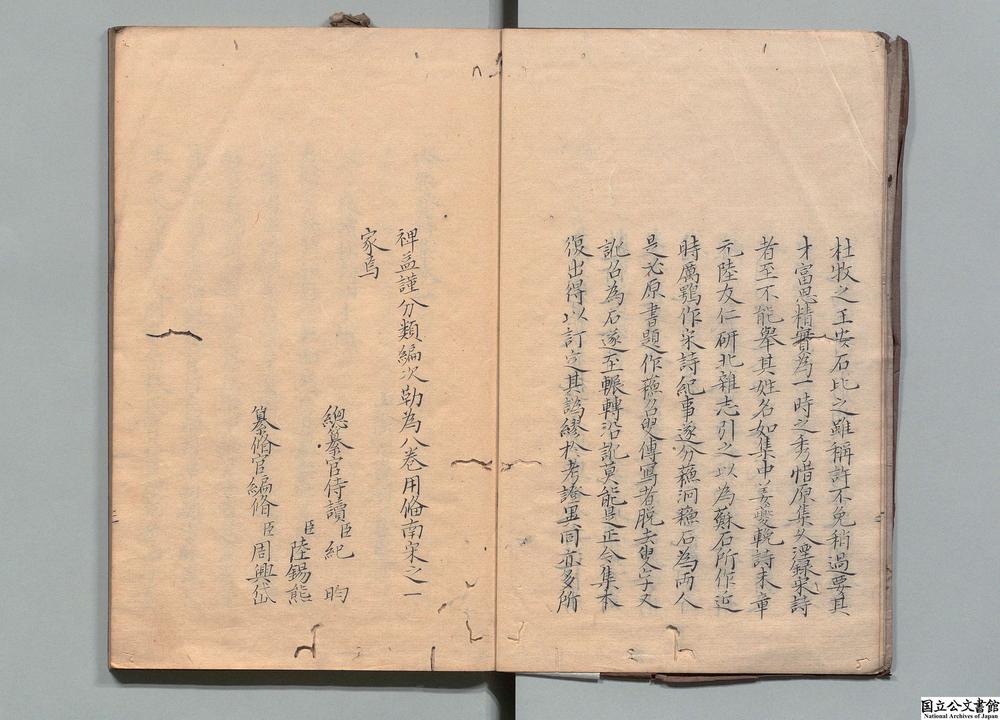 杜牧之王安石比之雖稱許不免稍過要其
才富思精實為一時之秀惜原集久湮錄宋詩
者至不能舉其姓名如集中姜夔輓詩末章
元陸友仁研北雜志引之以為蘇石所作近
時厲鶚作宋詩紀事遂分蘓泂蘓石為兩人
是必原書題作蘓召叟傳寫者脱去叟字又
訛召為石遂至輾轉沿訛莫能是正今集本
復出得以訂定其譌繆於考證異同亦多所
裨益謹分類編次勒為八卷用俻南宋之一
家焉
總纂官侍讀臣紀昀
臣陸錫熊
纂脩官編脩臣周興岱
国立公文書館
National Archives of Japan